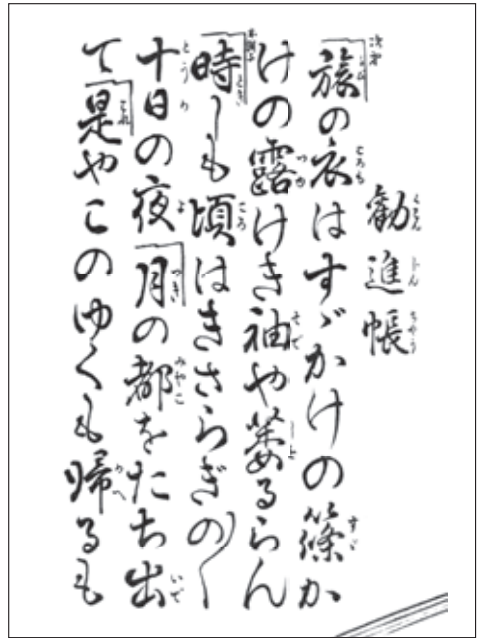 勧進帳
次第
旅の衣はすゞかけの篠か
けの露けき袖や萎るらん
本調子
時しも頃はきさらぎの〳〵
十日の夜月の都をたち出
て是やこのゆくも帰るも